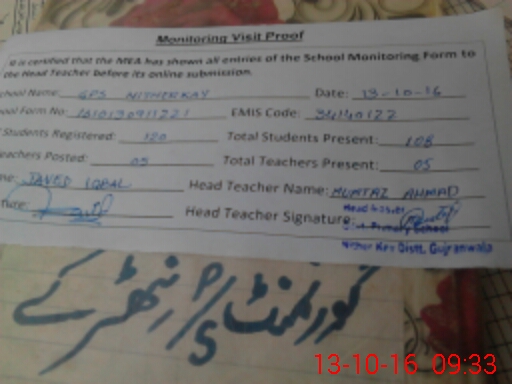 Monitoring Visit Proof
It is certified that the MEA has shown all entries of the School Monitoring Form to
the Head Teacher before its online submission.
chool Name: GPS NITHERKAY Date: 13-10-16
chool Form No: EMIS Code: 34140122
Students Registered: 120 Total Students Present: 108
eachers Posted: 05 Total Teachers Present: 05
me: JAVED IQBAL Head Teacher Name: MUMTAZ AHMAD
ture: Head Teacher Signature:
Head Master
Govt. Primary School
Nither Key Distt. Gujranwala
گورنمنٹ P/S نتھرکے
13-10-16 09:33